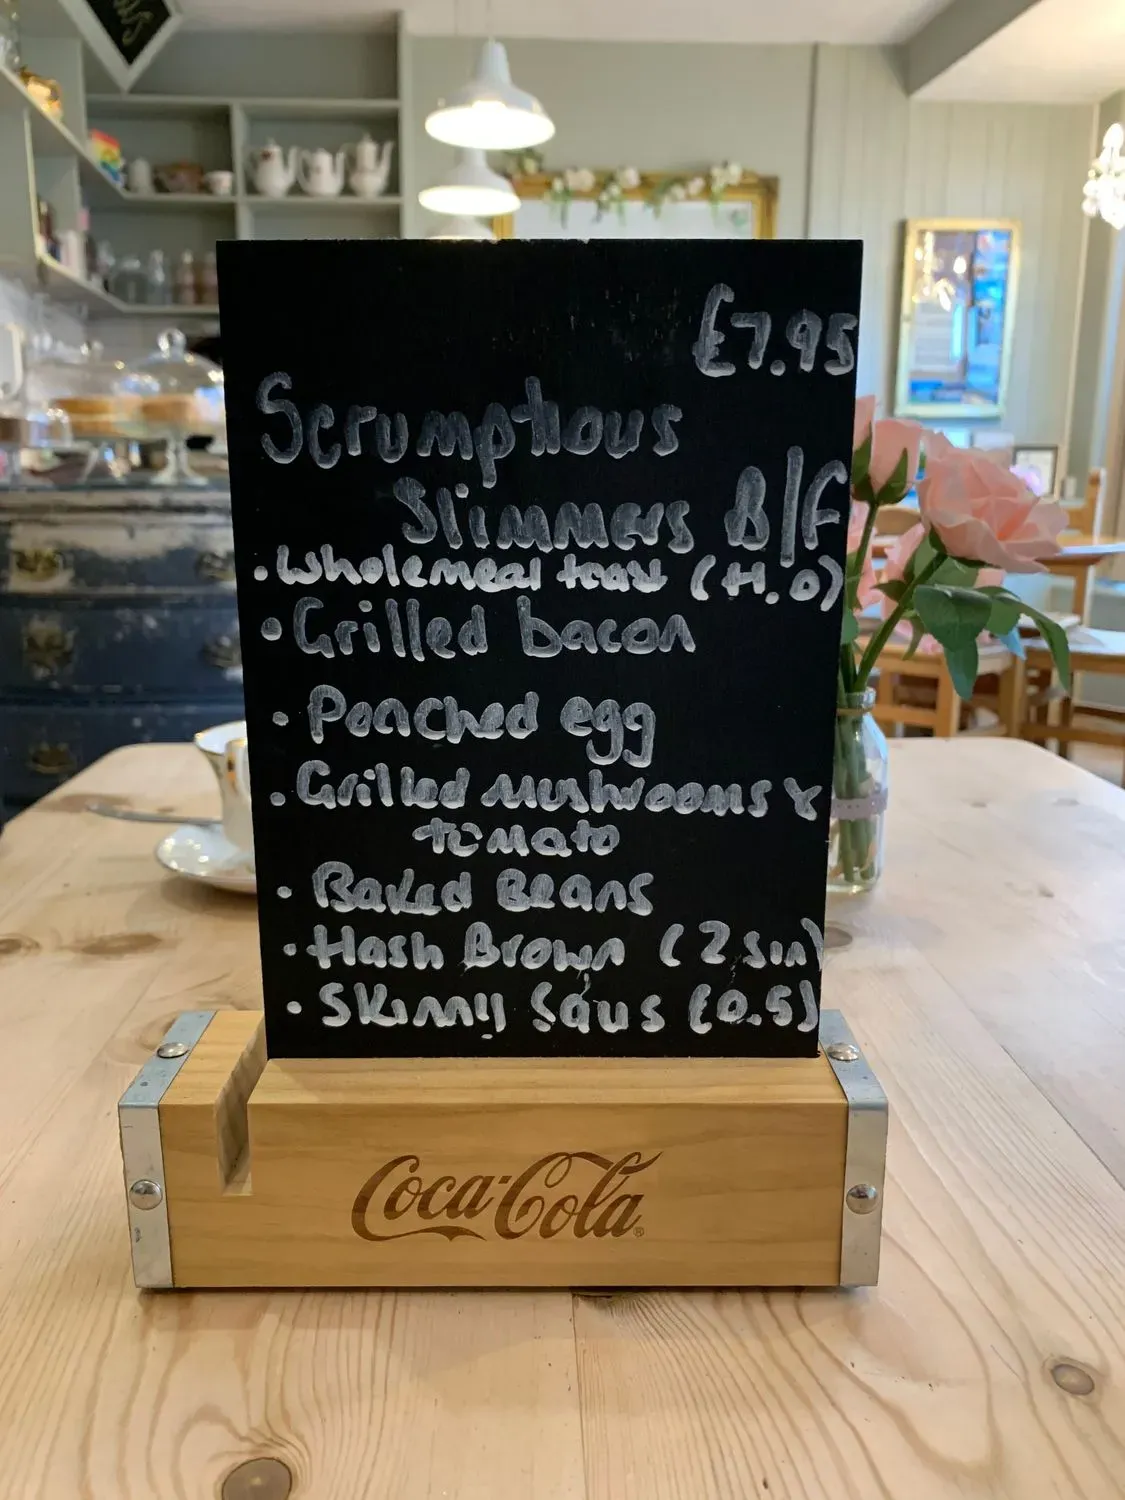 £7.95
Scrumptious
Slimmers B/F
• Wholemeal toast (H.O)
• Grilled bacon
• Poached egg
• Grilled mushrooms &
tomato
• Baked Beans
• Hash Brown (2 sin)
• Skinny Saus (0.5)
Coca-Cola®